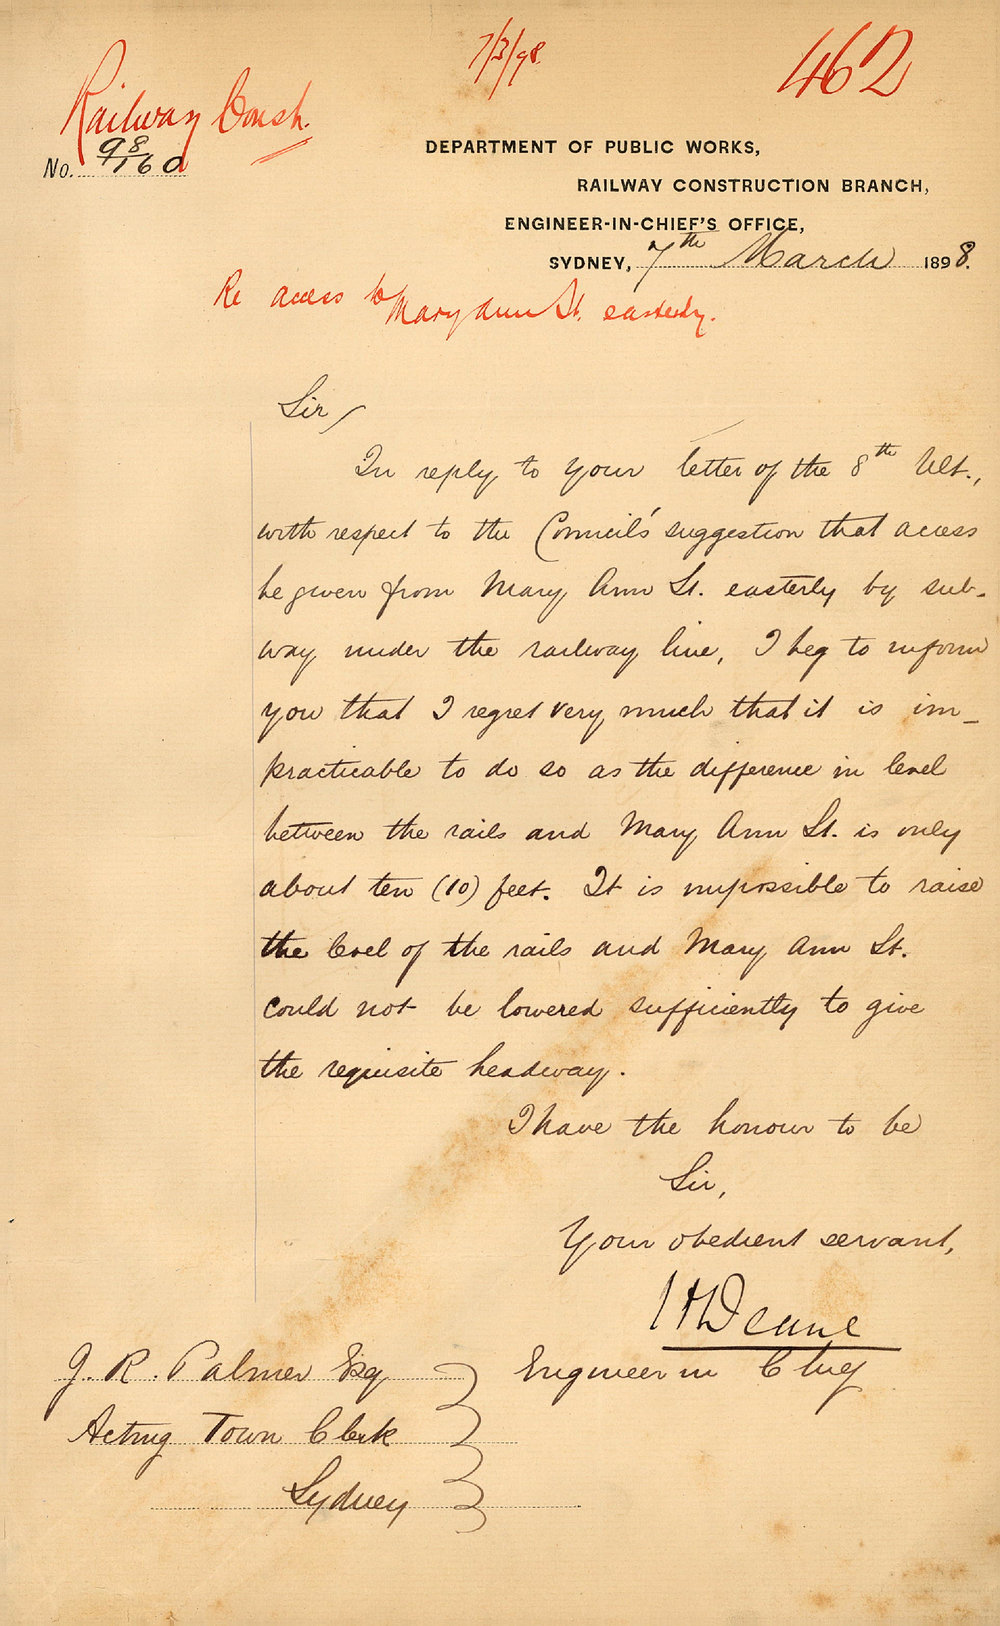 7/3/98.
462
Railway Const.
No. 98/160
DEPARTMENT OF PUBLIC WORKS,
RAILWAY CONSTRUCTION BRANCH,
ENGINEER-IN-CHIEF'S OFFICE,
SYDNEY, 7th March 1898.
Re access to Mary Ann St. easterly.
Sir,
In reply to your letter of the 8th Ult.,
with respect to the Council's suggestion that access
be given from Mary Ann St. easterly by sub-
way under the railway line, I beg to inform
you that I regret very much that it is im-
practicable to do so as the difference in level
between the rails and Mary Ann St. is only
about ten (10) feet. It is impossible to raise
the level of the rails and Mary Ann St.
could not be lowered sufficiently to give
the requisite headway.
I have the honour to be
Sir,
Your obedient servant,
H Deane
Engineer in Chief
J. R. Palmer Esq
Acting Town Clerk
Sydney